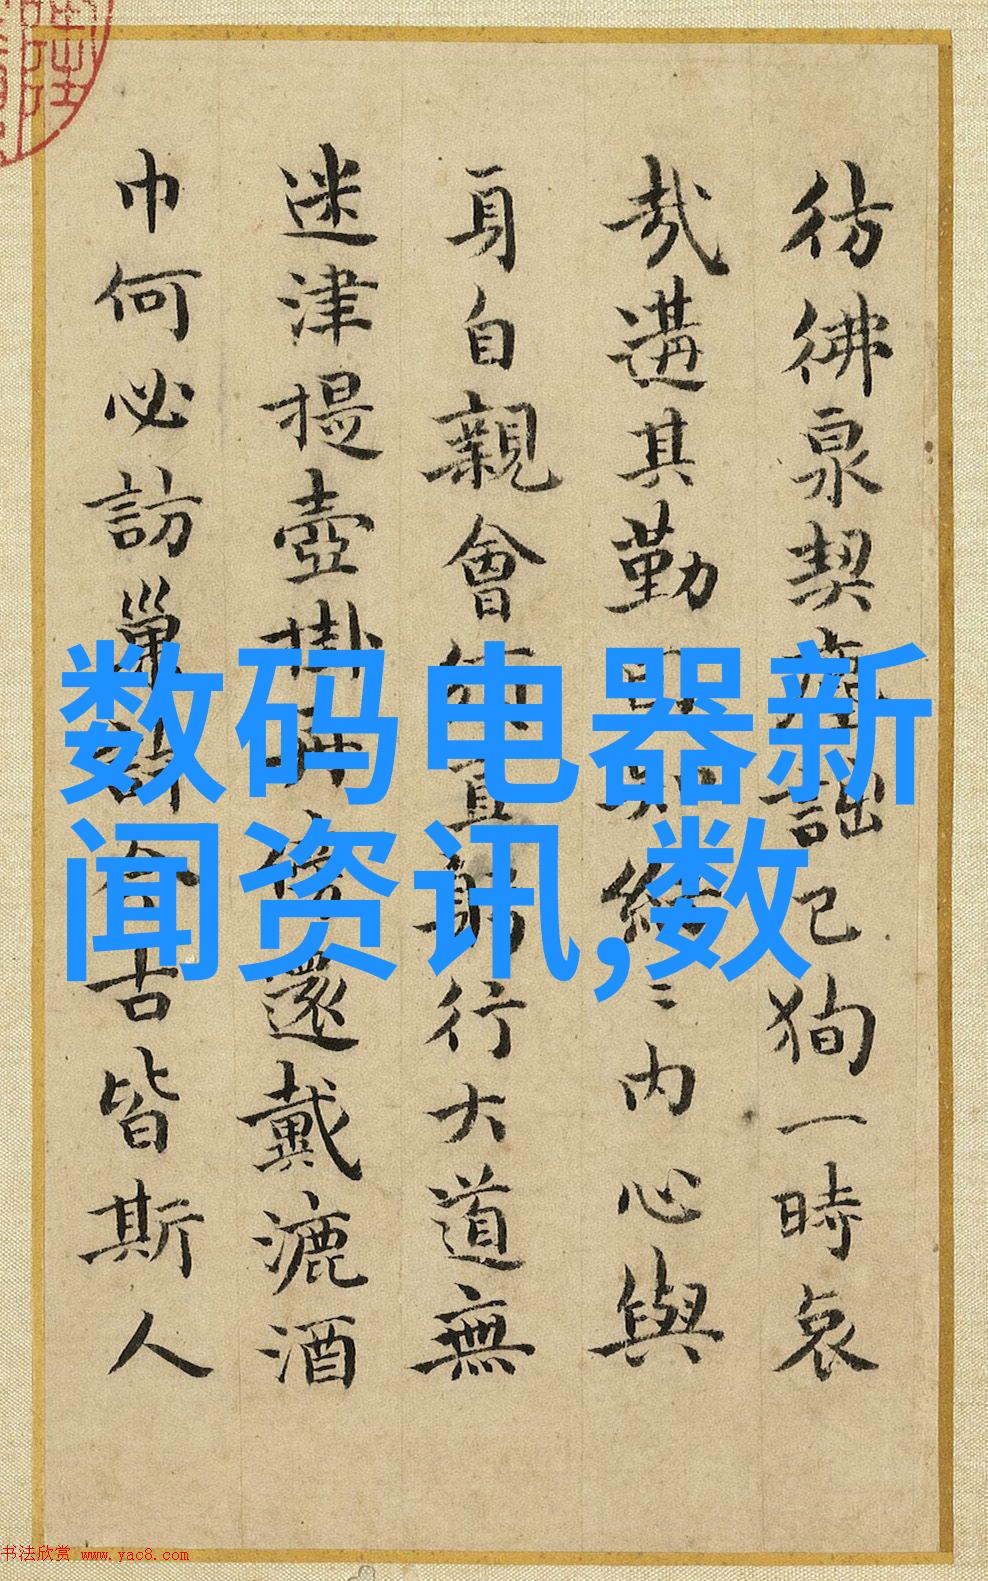 彷彿泉契詘已狥一時哀
哉遘其勤内心與
身自親會直躬行大道無
迷津提壺掛還戴漉酒
巾何必訪巢今古皆斯人
数码电器新
闻资讯,数
书法欣赏 www.yac8.com